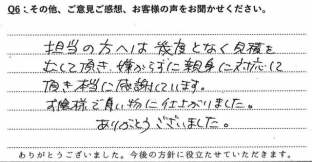 Q6:その他、ご意見ご感想、お客様の声をお聞かせください。
担当の方へは幾度となく見積を
むして頂き、嫌がらずに親身に対応して
頂き本当に感謝しています。
お陰様で良い物に仕上がりました。
ありがとうございました。
ありがとうございました。今後の方針に役立たせていただきます。